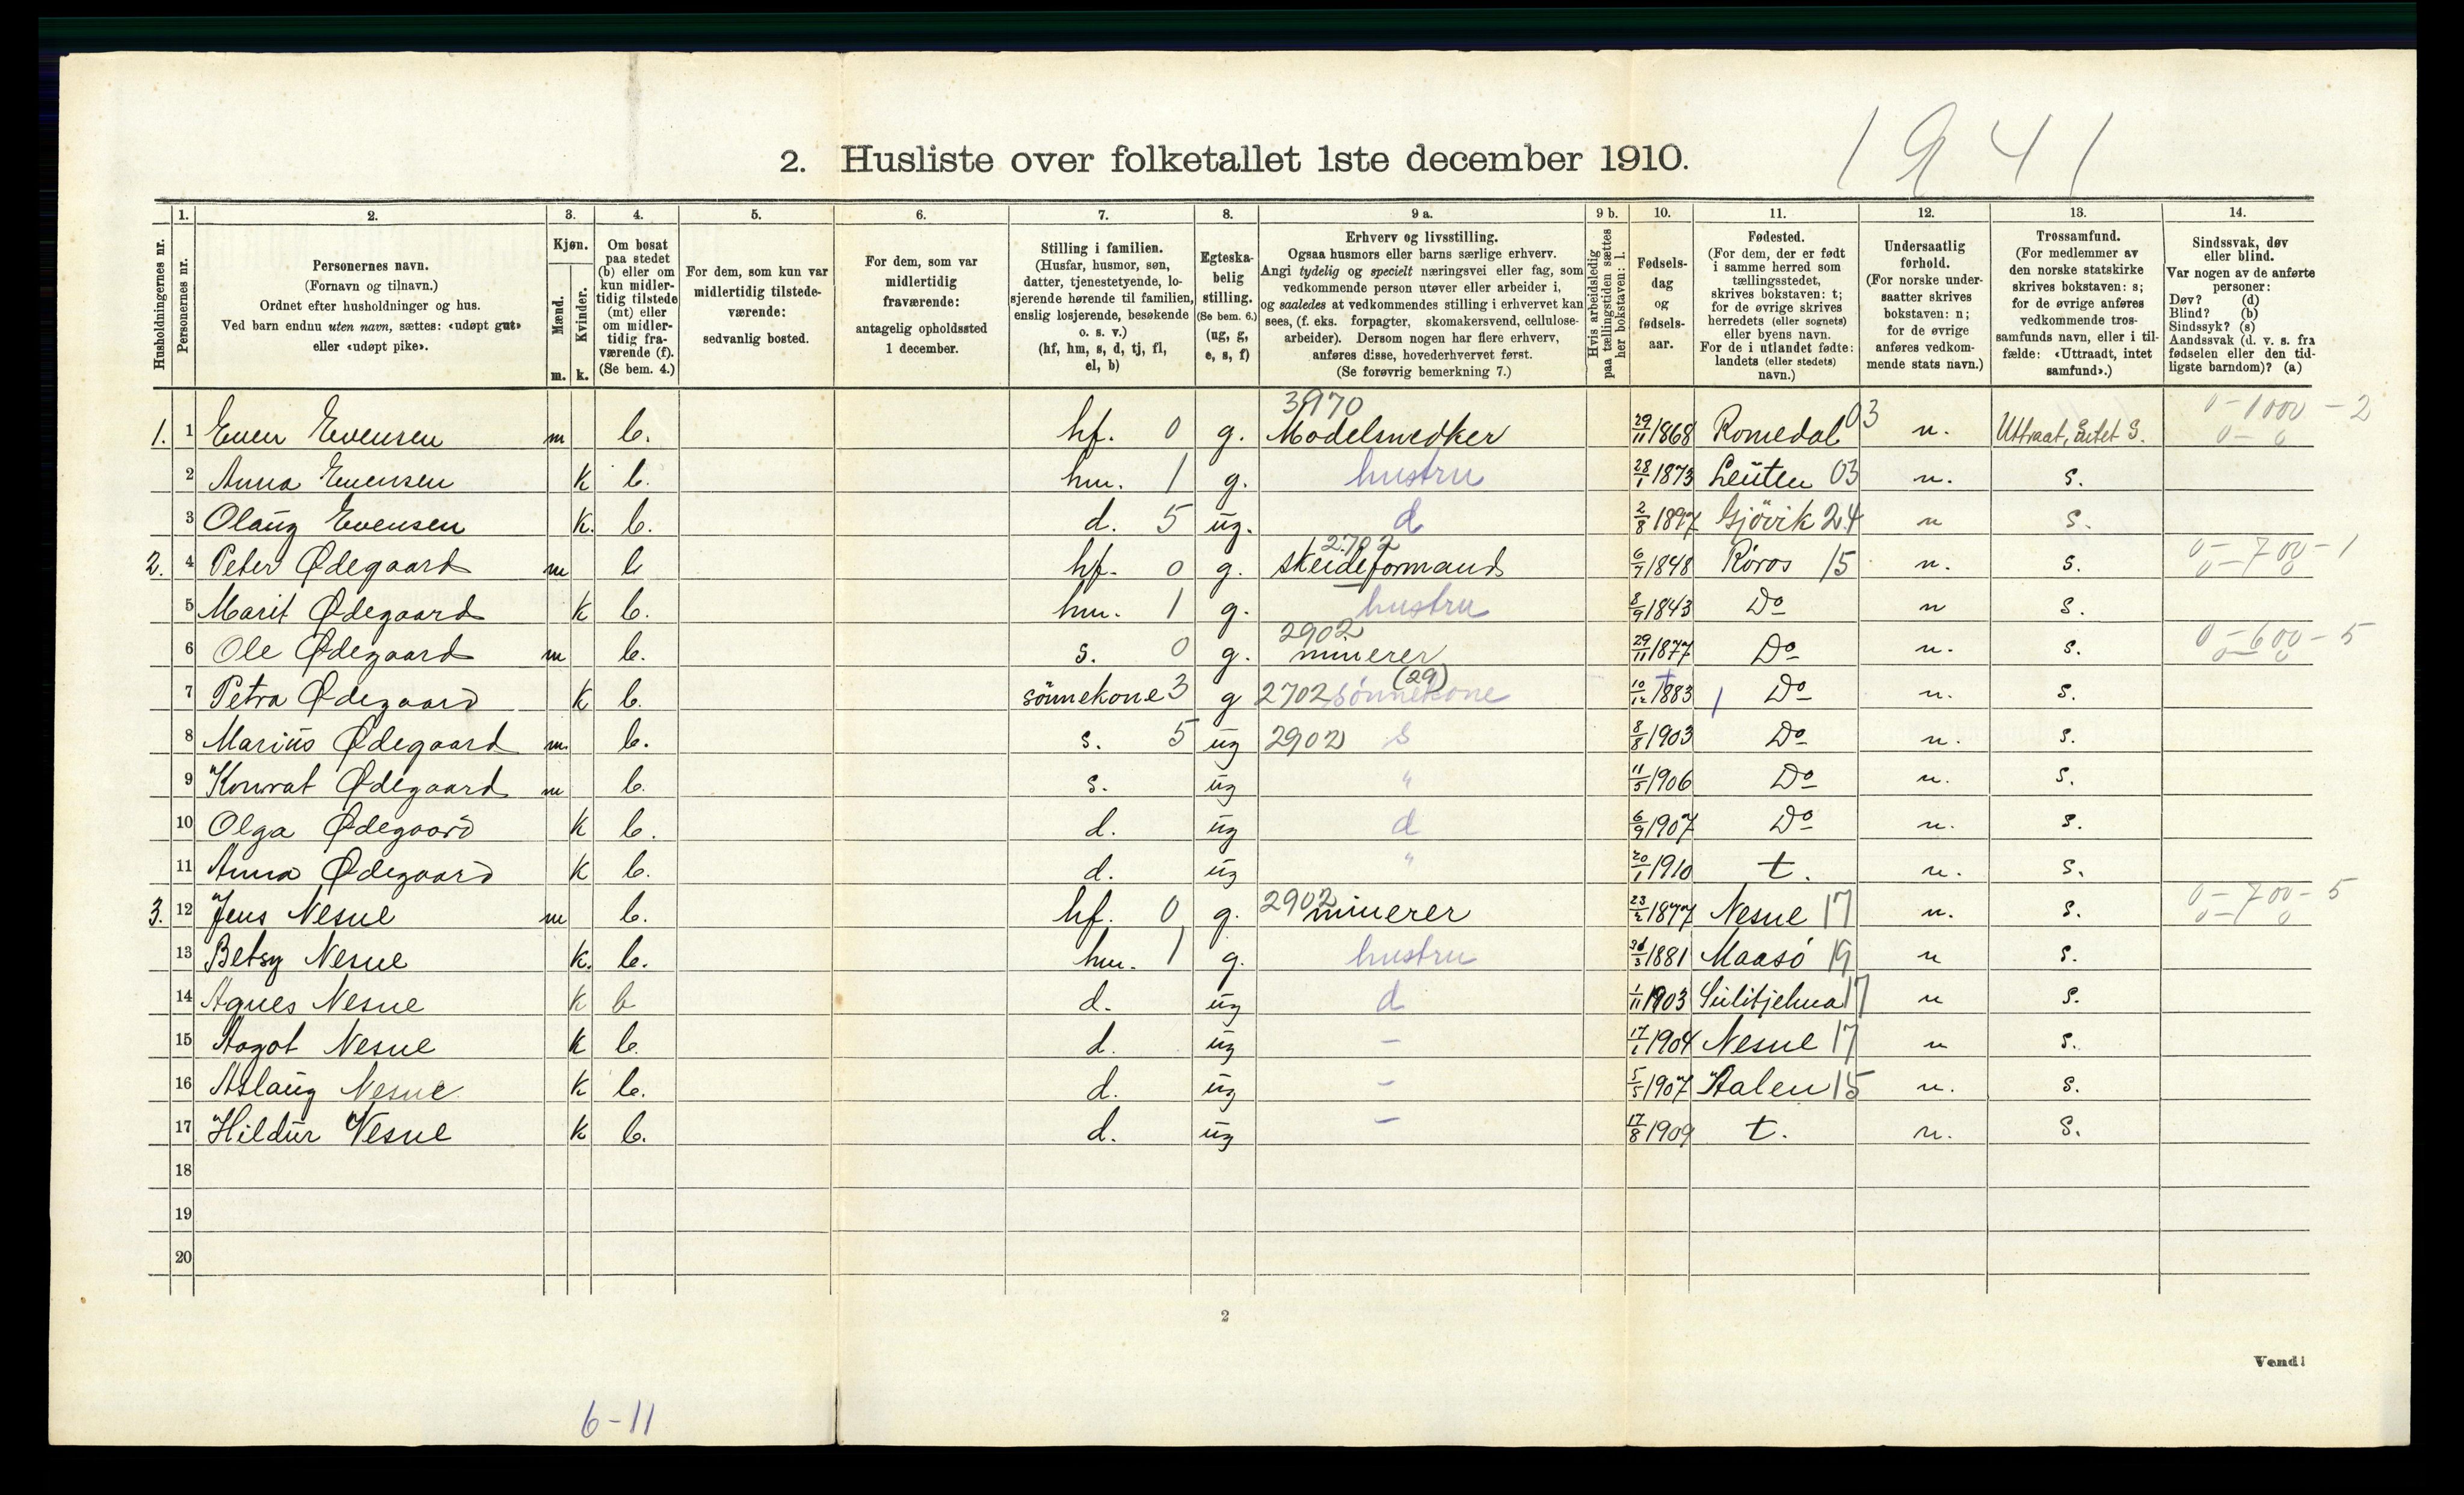 1941
2. Husliste over folketallet 1ste december 1910.
Husholdningernes nr.
Personernes nr.
1. 2. 3. 4. 5. 6. 7. 8. 9 a. 9 b. 10. 11. 12. 13. 14.
Personernes navn.
(Fornavn og tilnavn.)
Ordnet efter husholdninger og hus.
Ved barn endnu uten navn, sættes: «udøpt gut»
eller «udøpt pike».
Kjøn.
Mænd.
Kvinder.
m. k.
Om bosat
paa stedet
(b) eller om
kun midler-
tidig tilstede
(mt) eller
om midler-
tidig fra-
værende (f).
(Se bem. 4.)
For dem, som kun var
midlertidig tilstede-
værende:
sedvanlig bosted.
For dem, som var
midlertidig
fraværende:
antagelig opholdssted
1 december.
Stilling i familien.
(Husfar, husmor, søn,
datter, tjenestetyende, lo-
sjerende hørende til familien,
enslig losjerende, besøkende
o. s. v.)
(hf, hm, s, d, tj, fl,
el, b)
Egteska-
belig
stilling.
(Se bem. 6.)
(ug, g,
e, s, f)
Erhverv og livsstilling.
Ogsaa husmors eller barns særlige erhverv.
Angi tydelig og specielt næringsvei eller fag, som
vedkommende person utøver eller arbeider i,
og saaledes at vedkommendes stilling i erhvervet kan
sees, (f. eks. forpagter, skomakersvend, cellulose-
arbeider). Dersom nogen har flere erhverv,
anføres disse, hovederhvervet først.
(Se forøvrig bemerkning 7.)
Hvis arbeidsledig
paa tællingstiden sættes
her bokstaven: l.
Fødsels-
dag
og
fødsels-
aar.
Fødested.
(For dem, der er født
i samme herred som
tællingsstedet,
skrives bokstaven: t;
for de øvrige skrives
herredets (eller sognets)
eller byens navn.
For de i utlandet fødte:
landets (eller stedets)
navn.)
Undersaatlig
forhold.
(For norske under-
saatter skrives
bokstaven: n;
for de øvrige
anføres vedkom-
mende stats navn.)
Trossamfund.
(For medlemmer av
den norske statskirke
skrives bokstaven: s;
for de øvrige anføres
vedkommende tros-
samfunds navn, eller i til-
fælde: «Uttraadt, intet
samfund».)
Sindssvak, døv
eller blind.
Var nogen av de anførte
personer:
Døv? (d)
Blind? (b)
Sindssyk? (s)
Aandssvak (d. v. s. fra
fødselen eller den tid-
ligste barndom)? (a)
3970 0-1000-2
1. 1 Even Evensen m b. hf. 0 g. Modelsnedker 29/11 1868 Romedal 03 n. Uttraat, Intet S. 0-0
2 Anna Evensen k b. hm. 1 g. hustru 28/1 1873 Leuten 03 n. s.
3 Olaug Evensen k. b. d. 5 ug. d 2/8 1897 Gjövik 24 n s.
2702 0-700-1
2. 4 Peter Ødegaard m b hf. 0 g. skeideformand 6/7 1848 Röros 15 n. s. 0-0
5 Marit Ødegaard k b. hm. 1 g. hustru 8/9 1843 Do n s.
2902 0-600-5
6 Ole Ødegaard m b. s. 0 g. minerer 29/11 1877 Do n. s. 0-0
7 Petra Ødegaard k b. sönnekone 3 g 2702 sönnekone (29) 10/12 1883 Do n. s.
8 Marius Ødegaard m. b. s. 5 ug 2902 s 8/8 1903 Do n. s.
9 Konrat Ødegaard m b. s. ug " 11/5 1906 Do n. s.
10 Olga Ødegaard k b. d. ug d 6/9 1907 Do n. s.
11 Anna Ødegaard k b. d. ug " 20/1 1910 t. n. s.
3. 12 Jens Nesne m b. hf. 0 g. 2902 minerer 23/2 1877 Nesne 17 n. s. 0-700-5 0-0
13 Betsy Nesne k. b. hm. 1 g. hustru 1881 Maasö 19 n s.
14 Agnes Nesne k b d. ug d 1/11 1903 Sulitjelma 17 n s.
15 Aagot Nesne k b. d. ug - 17/1 1904 Nesne 17 n s.
16 Aslaug Nesne k b. d. ug - 5/5 1907 Aalen 15 n. s.
17 Hildur Nesne k b. d. ug - 17/8 1909 t. n. s.
18
19
20
2
Vend!
6-11